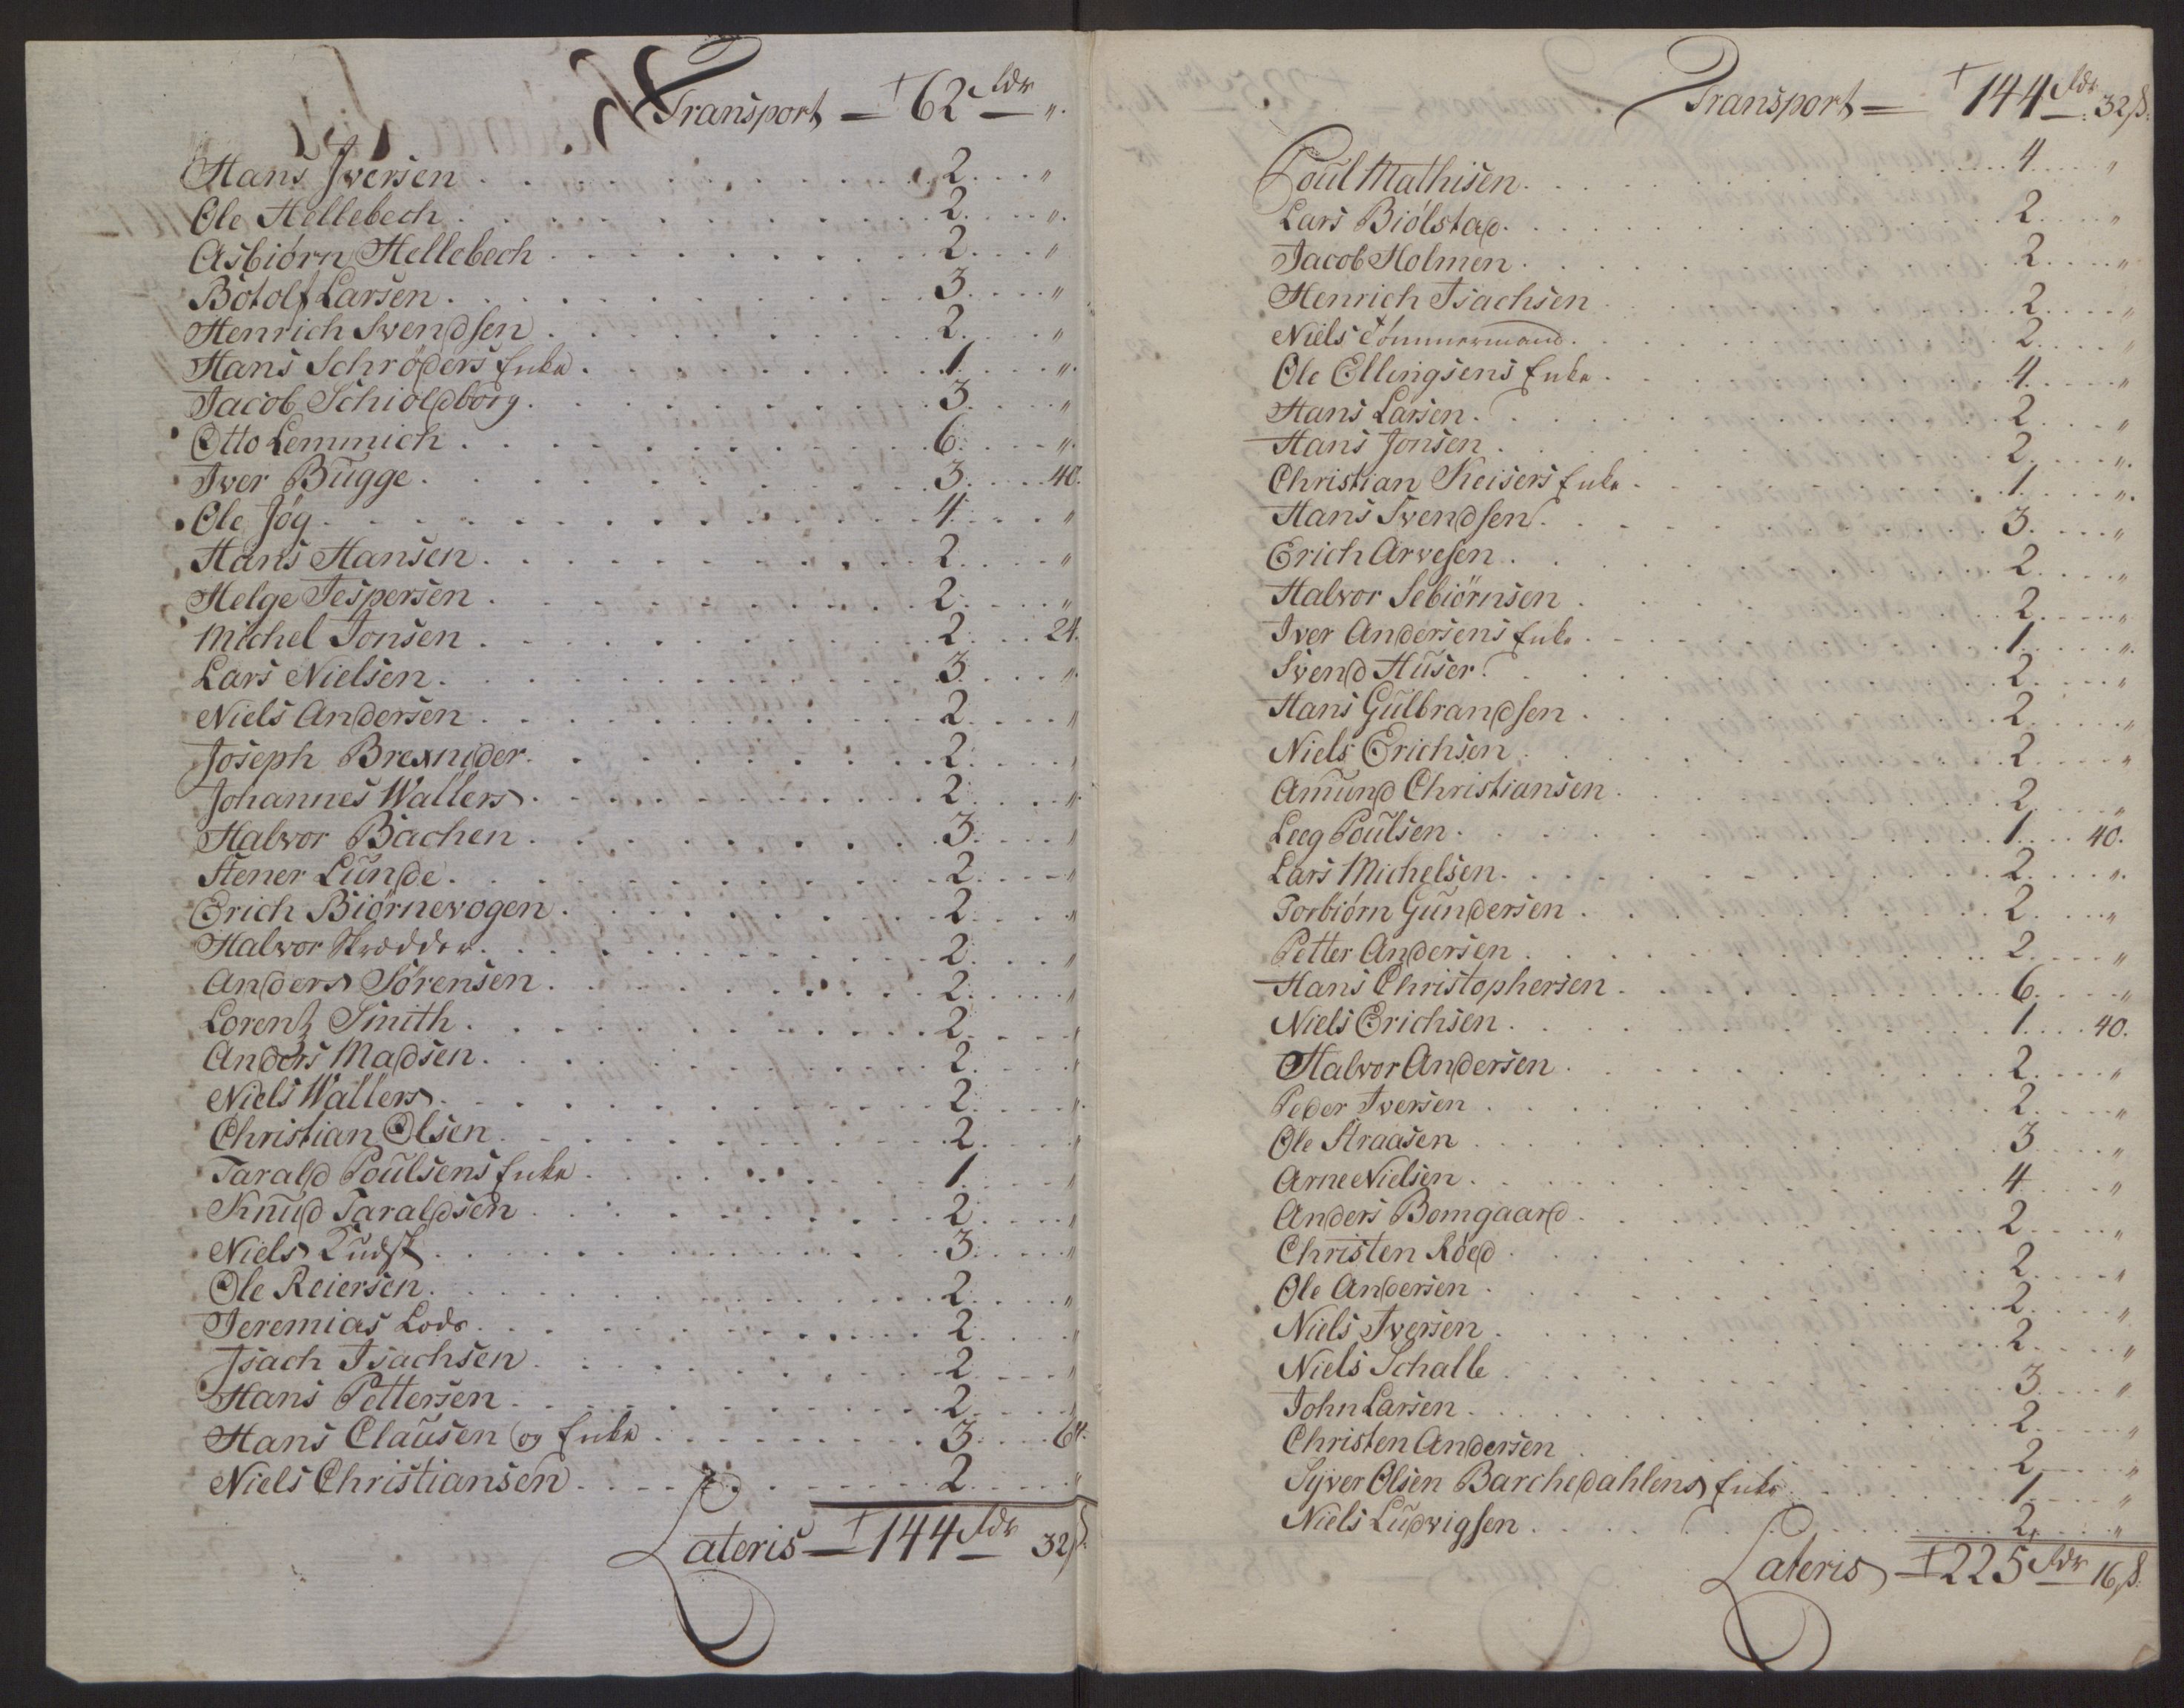 Transport — † 62 Rdr — „.
Hans Iversen . . . 2. . . „
Ole Hellebech . . . 2. . . „.
Asbiørn Hellebech . . . 2. . . „
Botolf Larsen . . . 3. . . „
Henrich Svendsen . . . 2. . . „
Hans Schrøders Enke . . . 1. . . „.
Jacob Schioldborg . . . 3. . . „
Otto Lemmich . . . 6. . . „.
Iver Bugge . . . 3. . . 40.
Ole Jøg . . . 4. . . „
Hans Hansen . . . 2. . . „
Helge Jespersen . . . 2. . . „
Michel Jonsen . . . 2. . . 24.
Lars Nielsen . . . 3. . . „.
Niels Andersen . . . 2. . . „
Joseph Brexnider . . . 2. . . „
Johannes Wallers . . . 2. . . „.
Halvor Bachen . . . 3. . . „
Stener Lunde . . . 2. . . „
Erich Biørnevogen . . . 2. . . „
Halvor Skrædder . . . 2. . . „
Anders Sørensen . . . 2. . . „
Lorentz Smith . . . 2. . . „
Anders Madsen . . . 2. . . „
Niels Wallers . . . 2. . . „.
Christian Olsen . . . 2. . . „
Tarald Poulsens Enke . . . 1. . . „
Knud Taraldsen . . . 2. . . „
Niels . . . 3. . . „
Ole Reiersen . . . 2. . . „
Jeremias Lods . . . 2. . . „
Isach Isachsen . . . 2. . . „
Hans Pettersen . . . 2. . . „
Hans Clausen og Enke . . . 3. . . 64.
Niels Christiansen . . . 2. . . „
Lateris — † 144 Rdr 32 ß.
Transport = † 144 Rdr 32 ß.
Poul Mathisen . . . 4. . . „
Lars Biølstad . . . 2. . . „
Jacob Holmen . . . 2. . . „
Henrich Isachsen . . . 2. . . „
Niels Tømmermand . . . 2. . . „
Ole Ellingsens Enke . . . 4. . . „
Hans Larsen . . . 2. . . „
Hans Jonsen . . . 2. . . „.
Christian Keisers Enke . . . 1. . . „.
Hans Svendsen . . . 3. . . „
Erich Arvesen . . . 2. . . „
Halvor Sebiørnsen . . . 2. . . „
Iver Andersens Enke . . . 1. . . „.
Svend Huser . . . 2. . . „
Hans Gulbrandsen . . . 2. . . „
Niels Erichsen . . . 2. . . „
Amund Christiansen . . . 2. . . „
Leeg Poulsen . . . 1. . . 40.
Lars Michelsen . . . 2. . . „.
Torbiørn Gundersen . . . 2. . . „
Petter Andersen . . . 2. . . „
Hans Christophersen . . . 6. . . „
Niels Erichsen . . . 1. . . 40.
Halvor Andersen . . . 2. . . „
Peder Iversen . . . 2. . . „
Ole Straasen . . . 3. . . „
Arne Nielsen . . . 4. . . „
Anders Bomgaard . . . 2. . . „
Christen Röed . . . 2. . . „
Ole Andersen . . . 2. . . „
Niels Iversen . . . 2. . . „
Niels Schalle . . . 3. . . „
John Larsen . . . 2. . . „
Christen Andersen . . . 2. . . „
Syver Olsen Barchedahlens Enke . . . 1. . . „
Niels Ludvigsen . . . 2. . . „
Lateris — † 225 Rdr 16 ß.